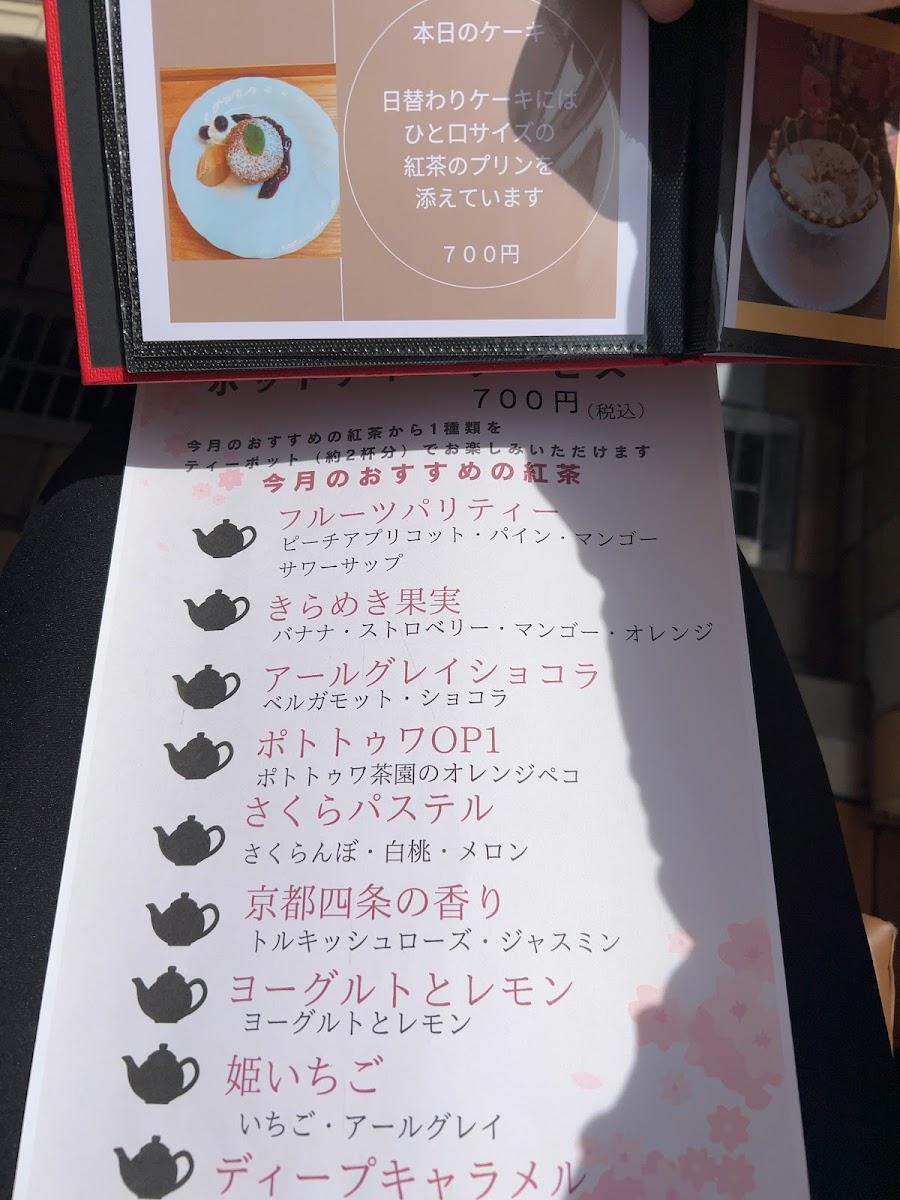 本日のケーキ
日替わりケーキには
ひと口サイズの
紅茶のプリンを
添えています
700円
700円(税込)
今月のおすすめの紅茶から1種類を
ティーポット(約2杯分)でお楽しみいただけます
今月のおすすめの紅茶
フルーツパリティー
ピーチアプリコット・パイン・マンゴー
サワーサップ
きらめき果実
バナナ・ストロベリー・マンゴー・オレンジ
アールグレイショコラ
ベルガモット・ショコラ
ポトトゥワOP1
ポトトゥワ茶園のオレンジペコ
さくらパステル
さくらんぼ・白桃・メロン
京都四条の香り
トルキッシュローズ・ジャスミン
ヨーグルトとレモン
ヨーグルトとレモン
姫いちご
いちご・アールグレイ
ディープキャラメル